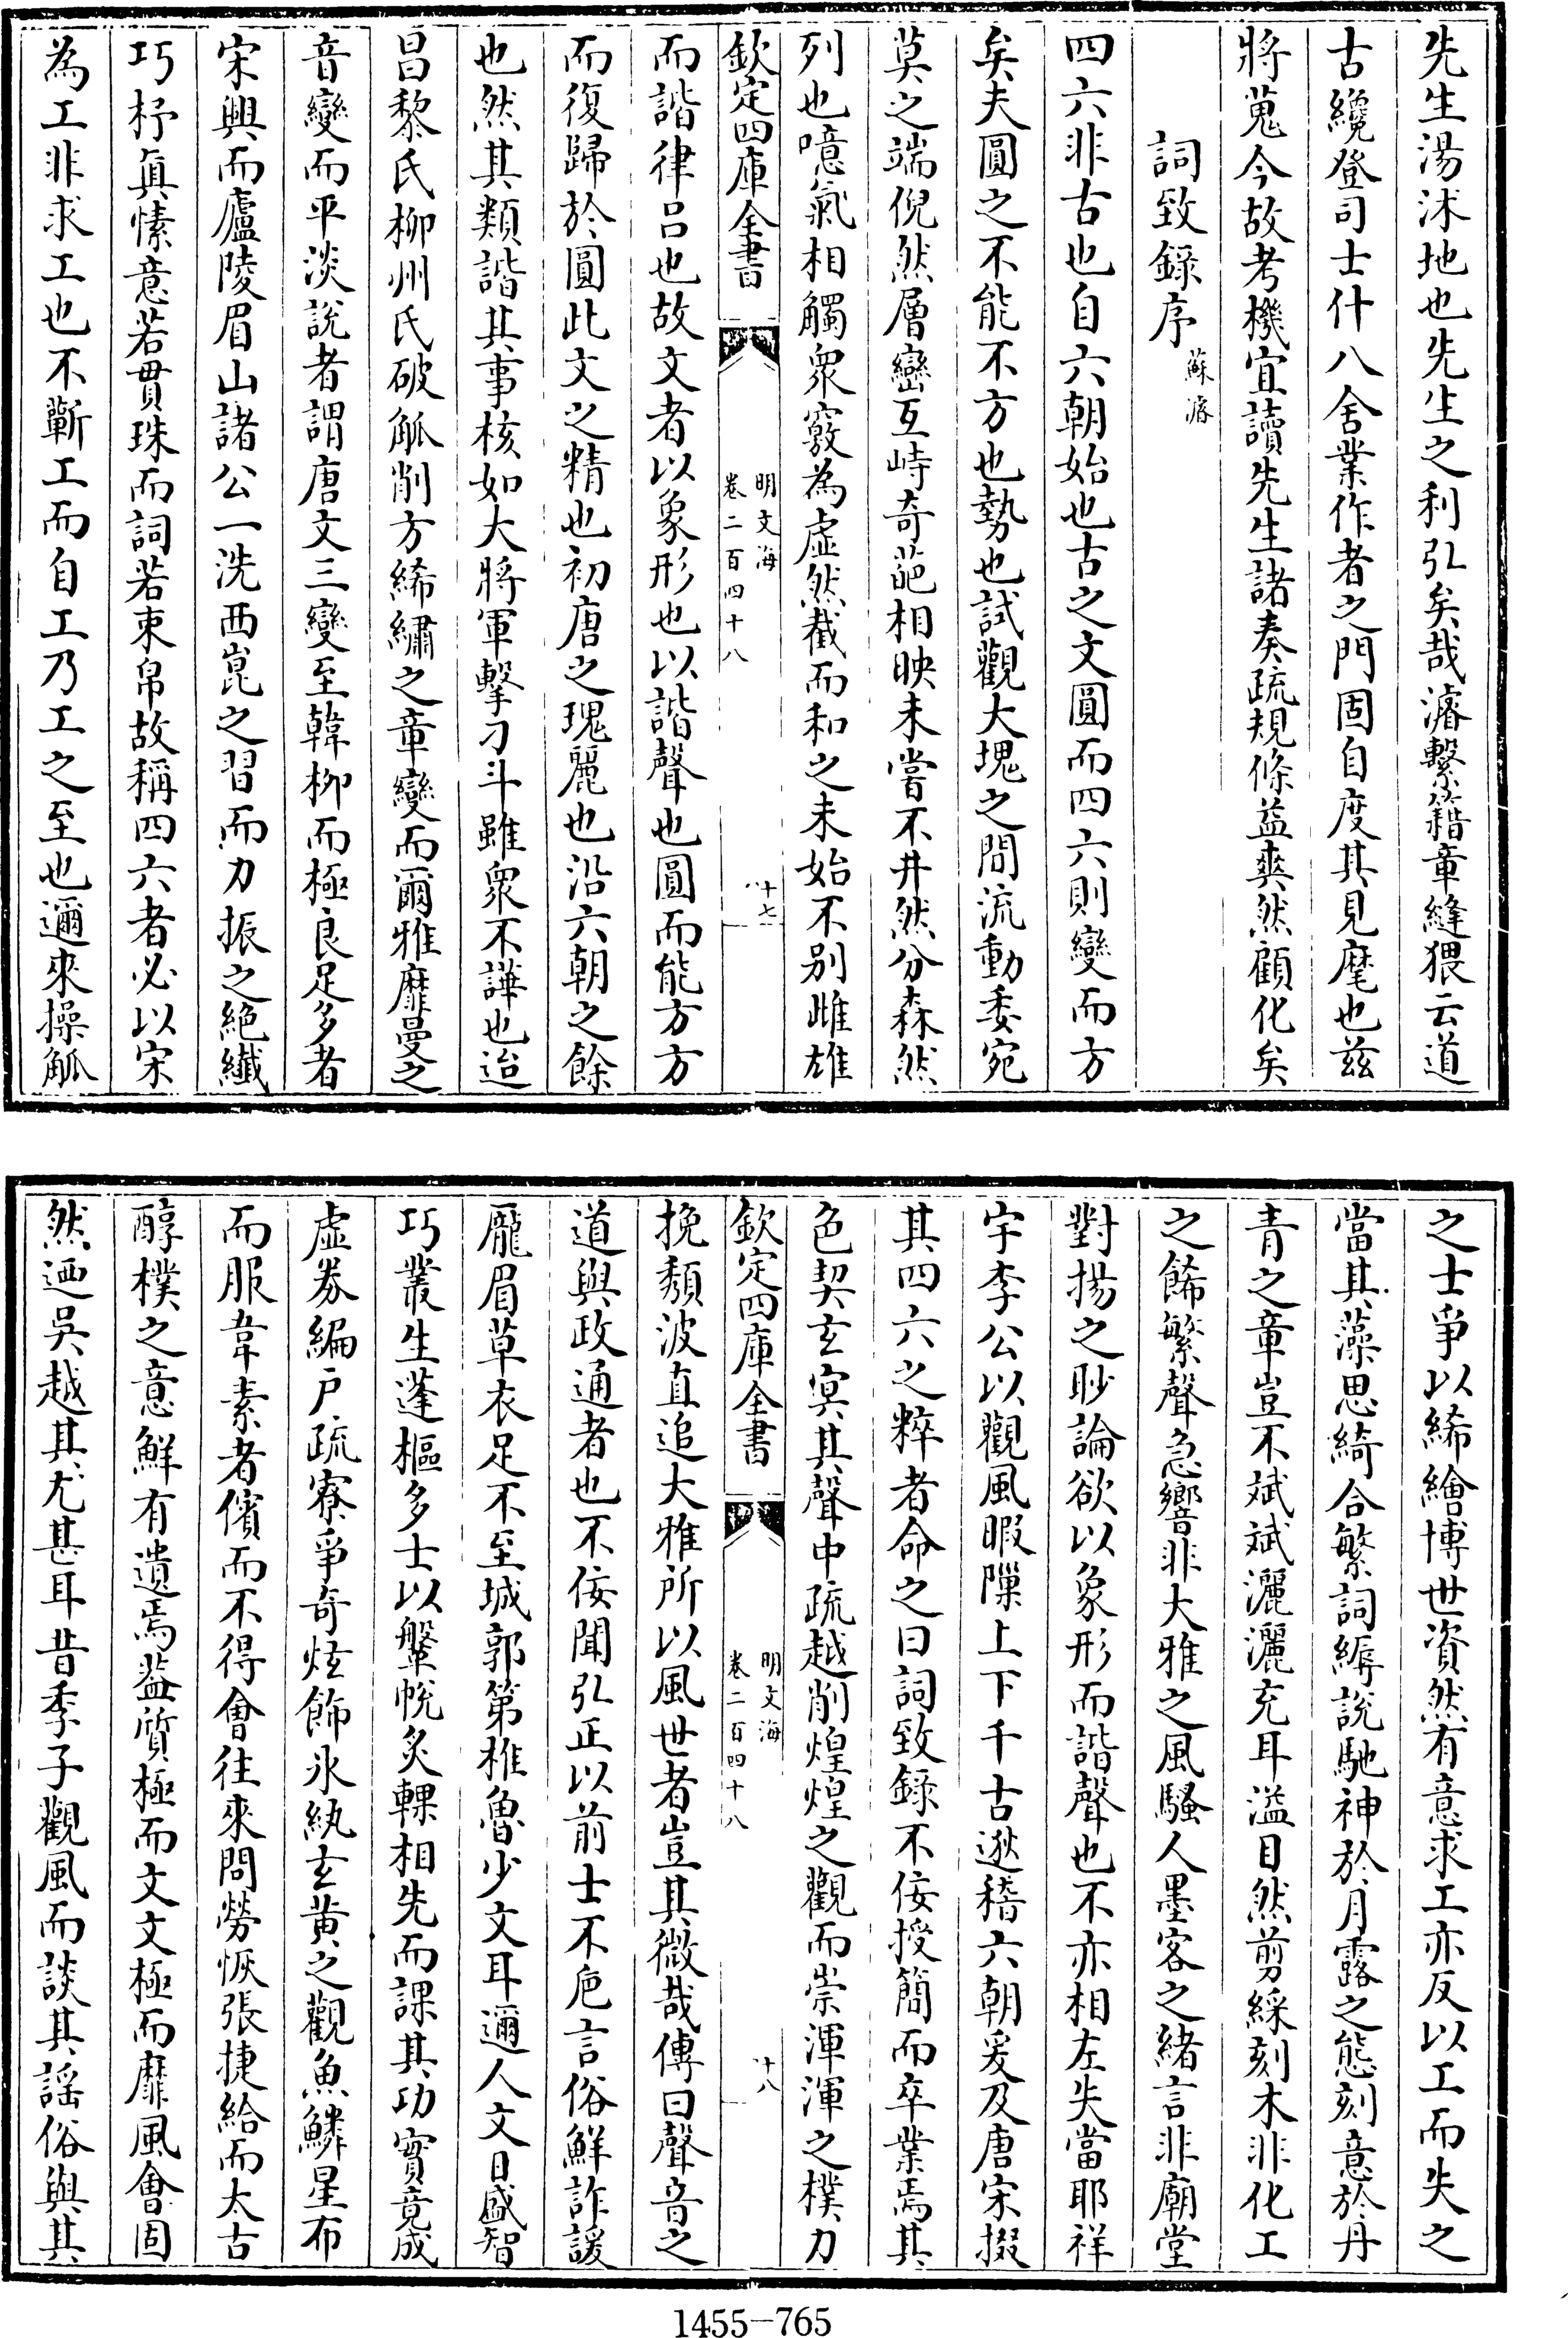 先生湯沭地也先生之利弘矣哉濬繫籍章縫猥云道
古纔登司士什八舍業作者之門固自度其見麾也兹
將蒐今故考機宜讀先生諸奏疏規條益爽然顧化矣
詞致錄序 蘇濬
四六非古也自六朝始也古之文圓而四六則變而方
矣夫圓之不能不方也勢也試觀大塊之間流動委宛
莫之端倪然層巒互峙奇葩相映未嘗不井然分森然
列也噫氣相觸衆竅為虛然截而和之未始不別雌雄
欽定四庫全書
明文海
卷二百四十八
十七
而諧律呂也故文者以象形也以諧聲也圓而能方方
而復歸於圓此文之精也初唐之瑰麗也沿六朝之餘
也然其類諧其事核如大將軍擊刁斗雖衆不譁也迨
昌黎氏柳州氏破觚削方絺繡之章變而爾雅靡曼之
音變而平淡說者謂唐文三變至韓柳而極良足多者
宋興而廬陵眉山諸公一洗西崑之習而力振之絶纖
巧杼眞愫意若貫珠而詞若束帛故稱四六者必以宋
為工非求工也不蘄工而自工乃工之至也邇來操觚
之士爭以絺繪博世資然有意求工亦反以工而失之
當其藻思綺合繁詞縟說馳神於月露之態刻意於丹
青之章豈不斌斌灑灑充耳溢目然剪綵刻木非化工
之餙繁聲急響非大雅之風騷人墨客之緒言非廟堂
對揚之眇論欲以象形而諧聲也不亦相左失當耶祥
宇李公以觀風暇隟上下千古逖稽六朝爰及唐宋掇
其四六之粹者命之曰詞致錄不佞授簡而卒業焉其
色契玄㝠其聲中疏越削煌煌之觀而崇渾渾之樸力
欽定四庫全書
明文海
卷二百四十八
十八
挽頽波直追大雅所以風世者豈其微哉傳曰聲音之
道與政通者也不佞聞弘正以前士不巵言俗鮮詐諼
厖眉草衣足不至城郭第椎魯少文耳邇人文日盛智
巧叢生蓬樞多士以鞶帨炙輠相先而課其功實竟成
虛劵編戸疏寮爭奇炫飾氷紈玄黄之觀魚鱗星布
而服韋素者儐而不得會往來問勞恢張捷給而太古
醇樸之意鮮有遺焉葢質極而文文極而靡風會固
然迺吳越其尤甚耳昔季子觀風而談其謠俗與其
1455-765